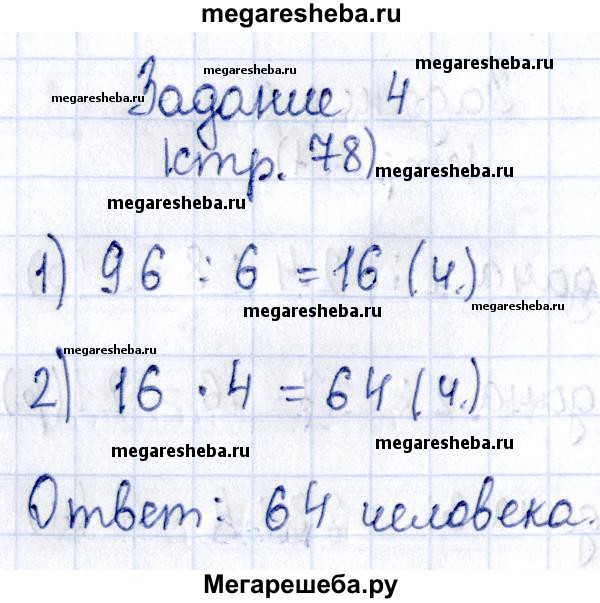 megaresheba.ru
megaresheba.ru
megaresheba.ru
megaresheba.ru
Задание 4
(стр. 78)
megaresheba.ru
megaresheba.ru
1) 96 : 6 = 16 (ч.)
megaresheba.ru
megaresheba.ru
megaresheba.ru
2) 16 · 4 = 64 (ч.)
megaresheba.ru
megaresheba.ru
Ответ: 64 человека.
Мегарешеба.ру